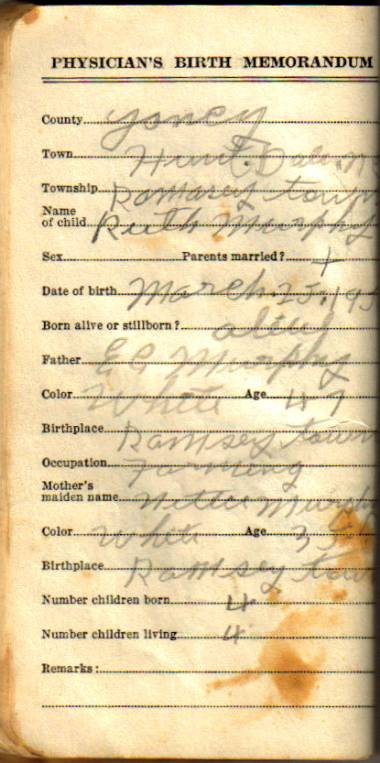 PHYSICIAN'S BIRTH MEMORANDUM
County Yancy
Town Hunt Dale N
Township Ramsey town
Name of child Ruth Murphy
Sex Parents married? +
Date of birth March 25, 19
Born alive or stillborn?
Father E C Murphy
Color White Age 47
Birthplace Ramsey town
Occupation Farming
Mother's maiden name Nettie Murphy
Color White Age 3
Birthplace Ramsey tow
Number children born 4
Number children living 4
Remarks: